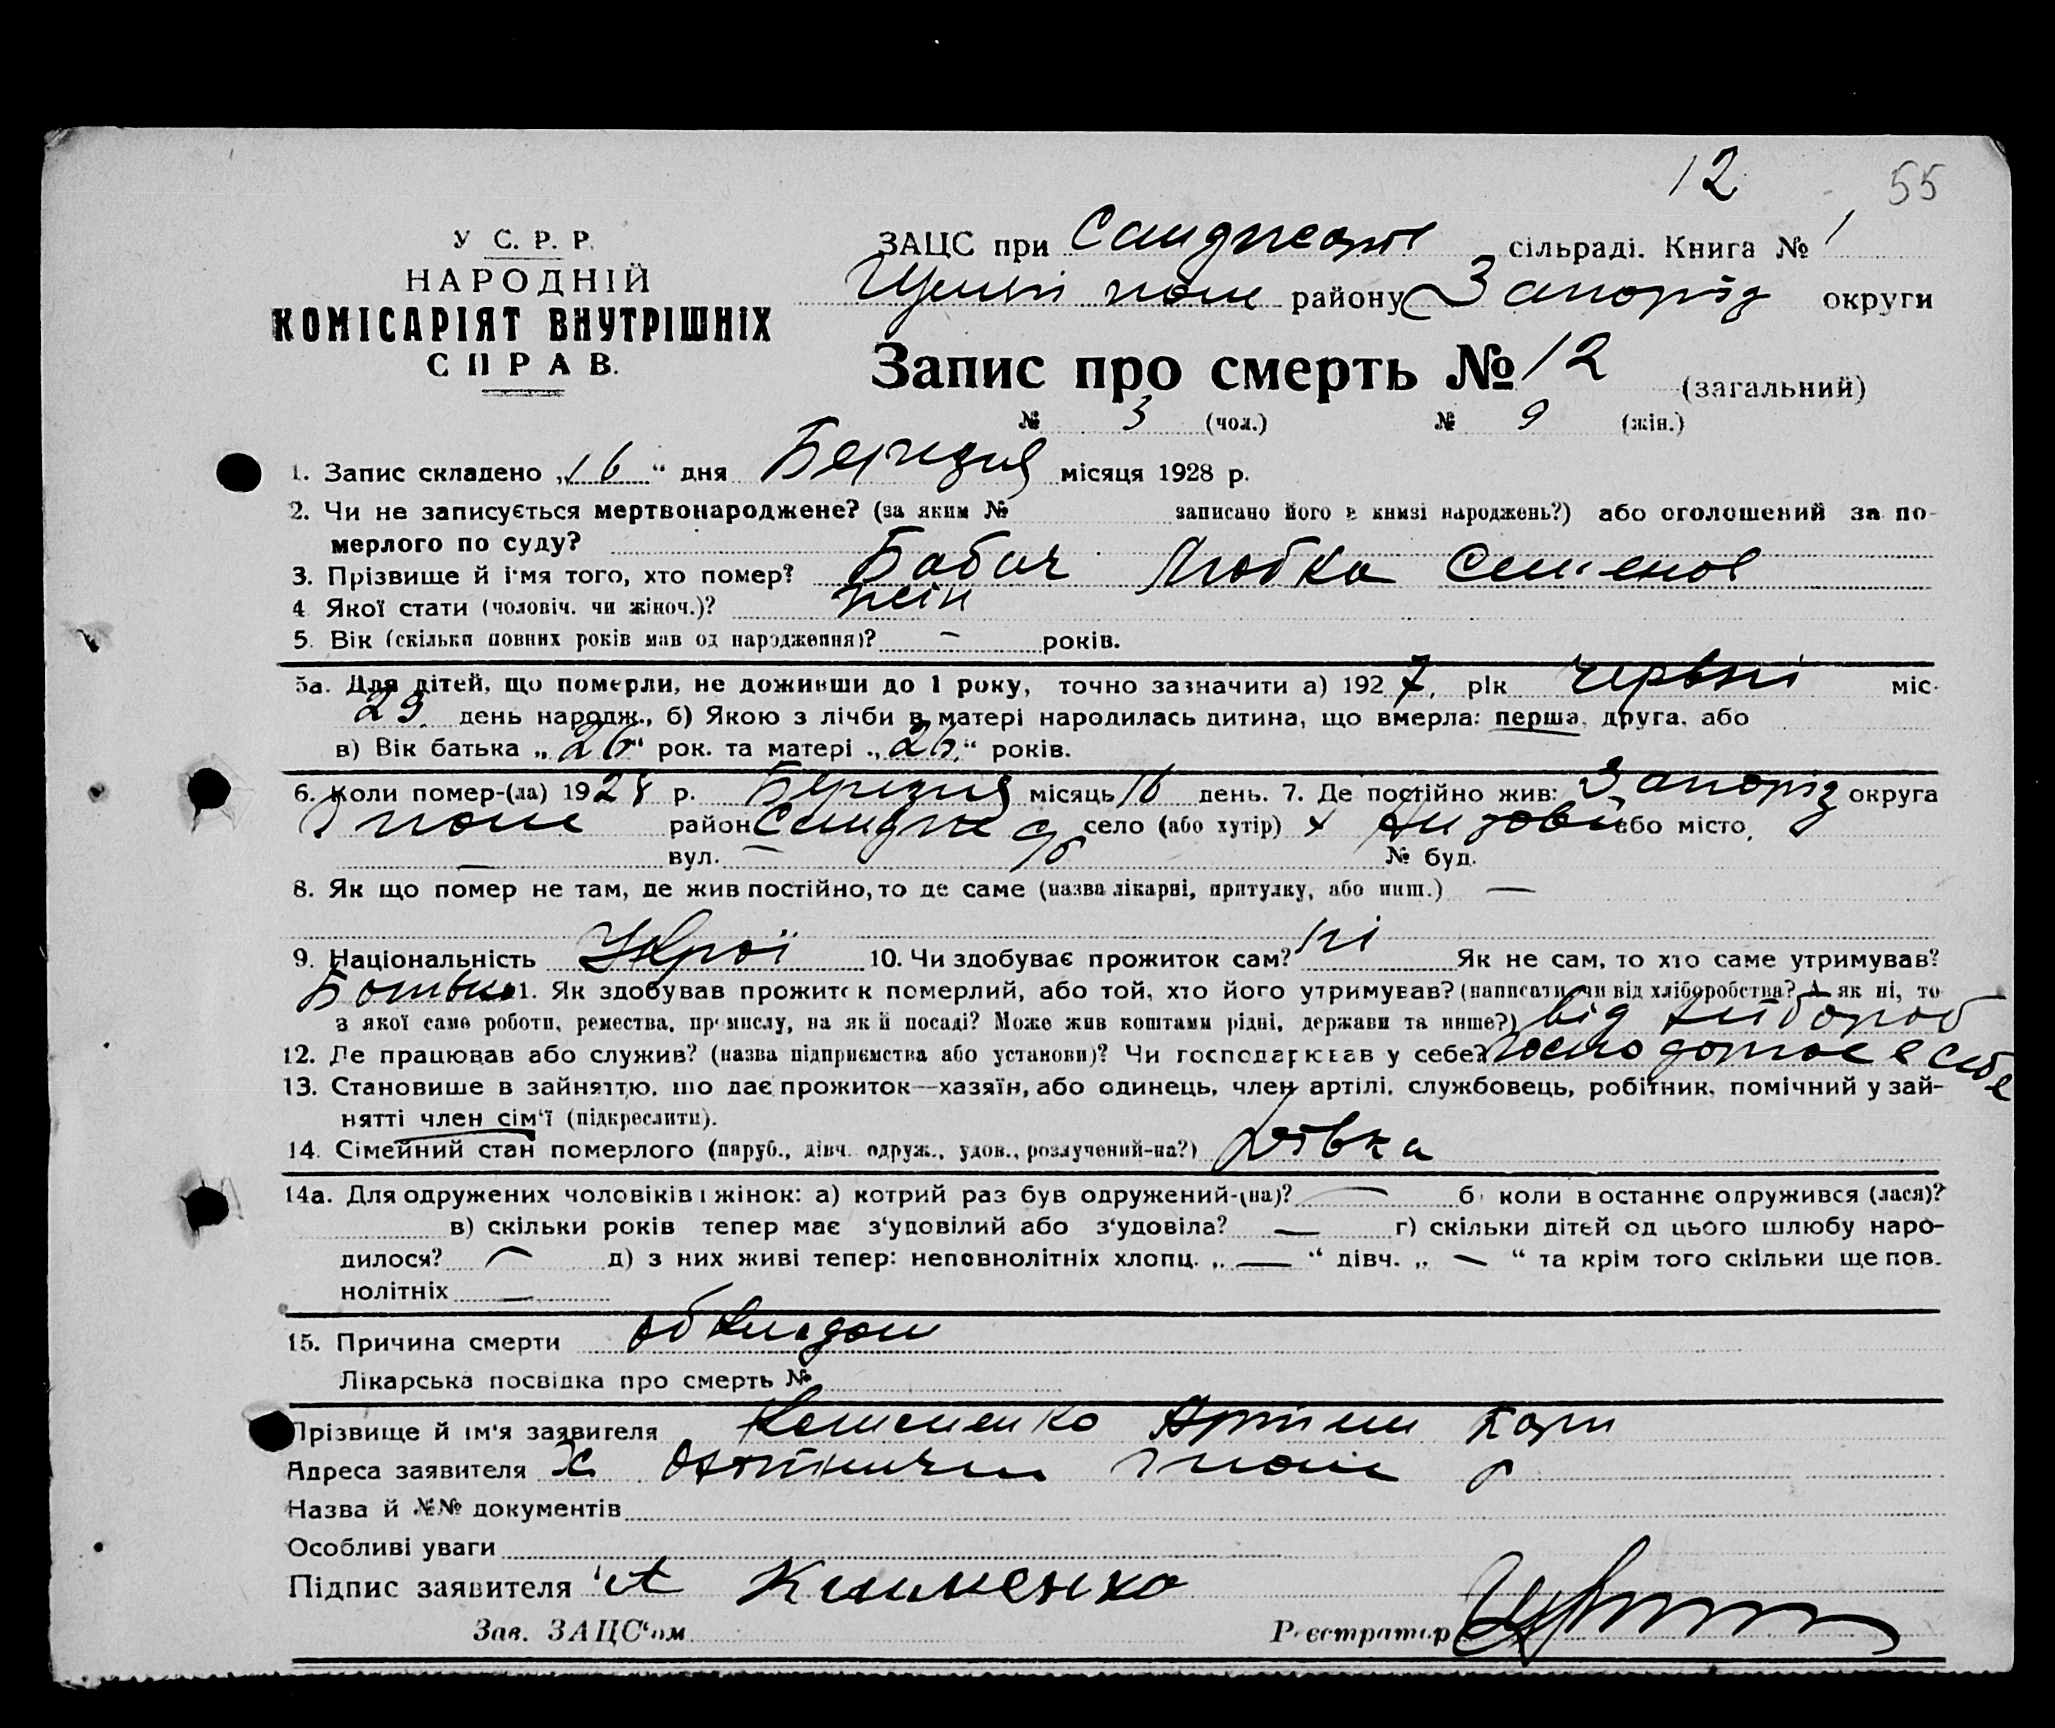 12 55
У С. Р. Р.
НАРОДНІЙ
КОМІСАРІЯТ ВНУТРІШНІХ
СПРАВ.
ЗАЦС при сільраді. Книга № 1
району Запоріз округи
Запис про смерть № 12 (загальний)
№ 3 (чол.) № 9 (жін.)
1. Запис складено „16“ дня Березня місяця 1928 р.
2. Чи не записується мертвонароджене? (за яким № записано його в книзі народжень?) або оголошений за по-
мерлого по суду?
3. Прізвище й ім'я того, хто помер? Бабич Любка Семенов
4 Якої стати (чоловіч. чи жіноч.)? жін
5. Вік (скільки повних років мав од народження)? — років.
5а. Для дітей, що померли, не доживши до 1 року, точно зазначити а) 1927, рік червні міс.
29 день народж., б) Якою з лічби в матері народилась дитина, що вмерла: перша, друга, або
в) Вік батька „26“ рок. та матері „26“ років.
6. Коли помер-(ла) 1928 р. Березня місяць 16 день. 7. Де постійно жив: Запоріз округа
район село (або хутір) х або місто,
— вул. — № буд.
8. Як що помер не там, де жив постійно, то де саме (назва лікарні, притулку, або инш.) —
9. Національність 10. Чи здобуває прожиток сам? ні Як не сам, то хто саме утримував?
Батько 11. Як здобував прожиток померлий, або той, хто його утримував? (написати чи від хліборобства? А як ні, то
з якої саме роботи, ремества, промислу, на якій посаді? Може жив коштами рідні, держави та инше?) від
12. Де працював або служив? (назва підприємства або установи)? Чи господарював у себе?
13. Становище в зайняттю, що дає прожиток—хазяїн, або одинець, член артілі, службовець, робітник, помічний у зай-
нятті член сім'ї (підкреслити).
14. Сімейний стан померлого (паруб., дівч. одруж., удов., розлучений-на?) Дівка
14а. Для одружених чоловіків і жінок: а) котрий раз був одружений-(на)? — б) коли в останнє одружився (лася)?
в) скільки років тепер має з'удовілий або з'удовіла? — г) скільки дітей од цього шлюбу наро-
дилося? — д) з них живі тепер: неповнолітніх хлопц. „—“ дівч. „—“ та крім того скільки ще пов.
нолітніх —
15. Причина смерти
Лікарська посвідка про смерть №
Прізвище й ім'я заявителя Клименко Артем
Адреса заявителя х
Назва й №№ документів
Особливі уваги
Підпис заявителя А Клименко
Зав. ЗАЦС'ом Реєстратор